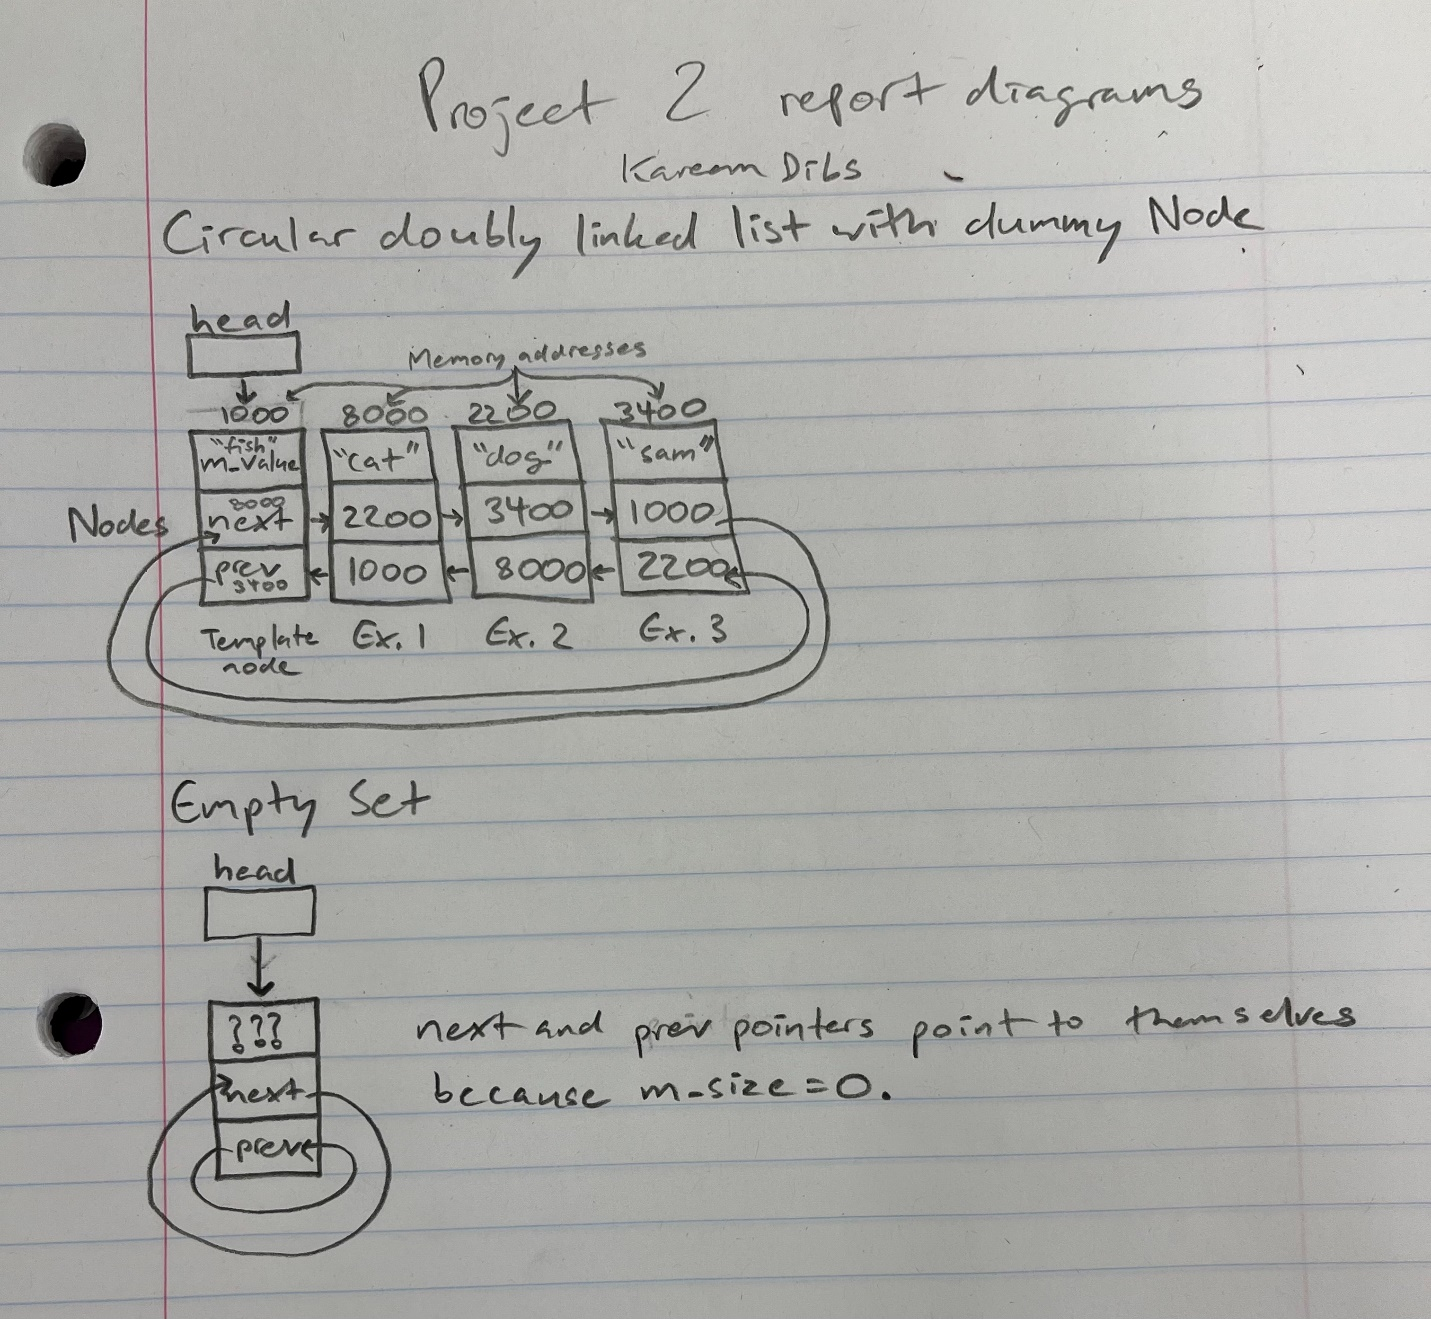 Project 2 report diagrams
Kareem Dibs
Circular doubly linked list with dummy Node
head
Memory addresses
1000 8000 2200 3400
"fish"
m_value "cat" "dog" "sam"
8000
Nodes next 2200 3400 1000
prev 1000 8000 2200
3400
Template Ex. 1 Ex. 2 Ex. 3
node
Empty Set
head
???
next and prev pointers point to themselves
next because m_size = 0.
prev